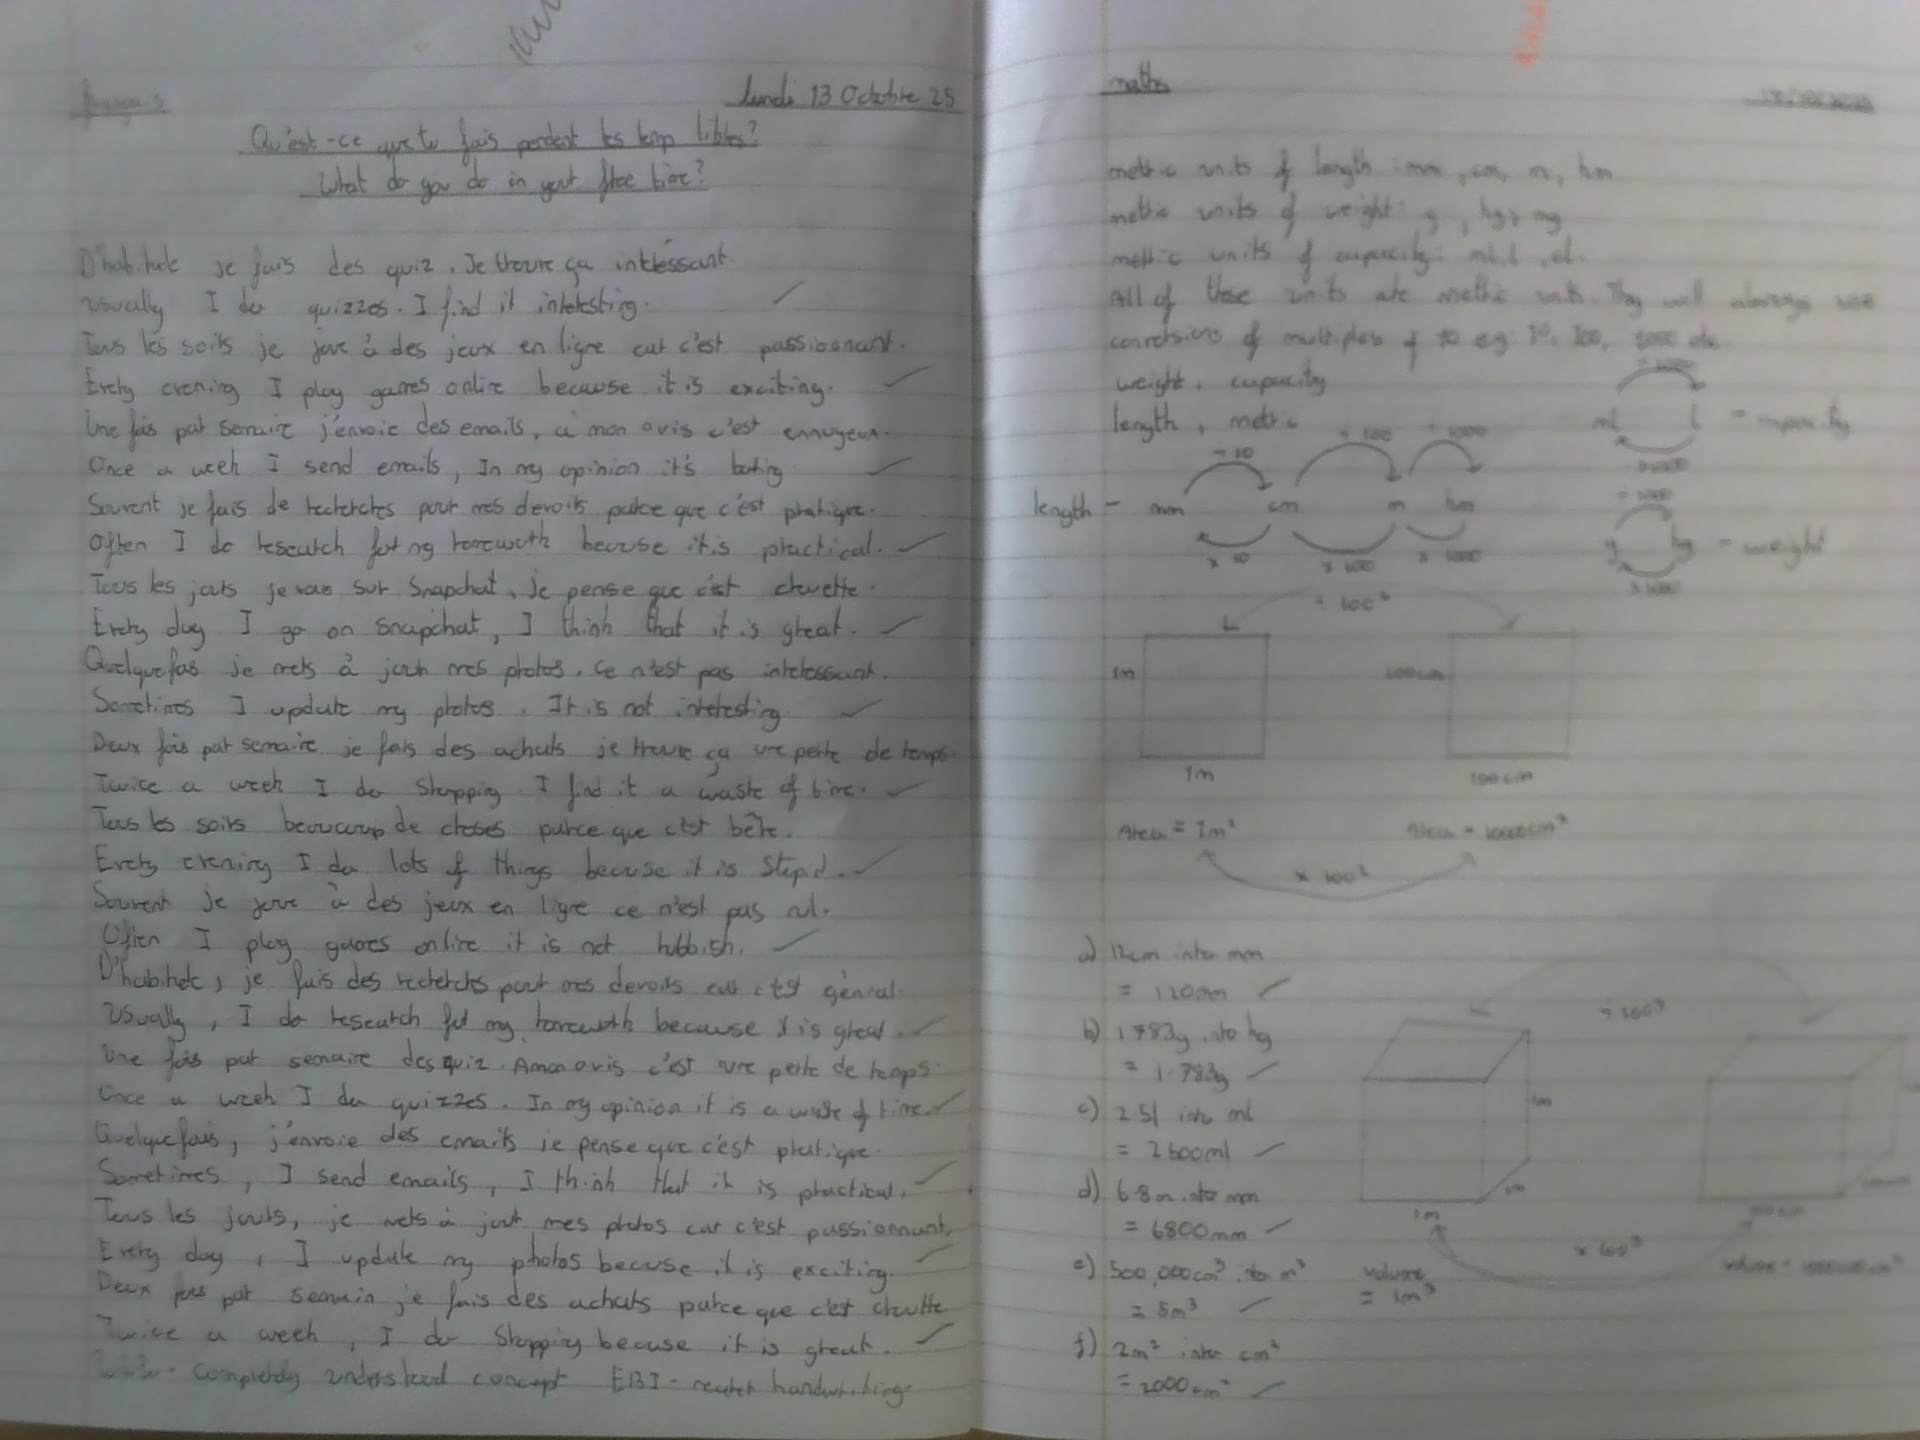 français
lundi 13 Octobre 25
Qu'est-ce que tu fais pendent les temp libres?
What do you do in your free time?
D'habitude je fais des quiz. Je trouve ça intéressant.
Usually I do quizzes. I find it interesting.
Tous les soirs je joue à des jeux en ligne car c'est passionnant.
Every evening I play games online because it is exciting.
Une fois par semaine j'envoie des emails, à mon avis c'est ennuyeux.
Once a week I send emails, In my opinion it's boring
Souvent je fais de recherches pour mes devoirs parce que c'est pratique.
Often I do research for my homework because it is practical.
Tous les jours je vais sur Snapchat, je pense que c'est chouette.
Every day I go on snapchat, I think that it is great.
Quelquefois je mets à jour mes photos. Ce n'est pas interessant.
Sometimes I update my photos. It is not interesting.
Deux fois par semaine je fais des achats je trouve ça une perte de temps
Twice a week I do shopping I find it a waste of time.
Tous les soirs beaucoup de choses parce que c'est bête.
Every evening I do lots of things because it is stupid.
Souvent je joue à des jeux en ligne ce n'est pas nul.
Often I play games online it is not rubbish.
D'habitude, je fais des recherches pour mes devoirs car c'est génial.
Usually, I do research for my homework because it is great.
Une fois par semaine des quiz. A mon avis c'est une perte de temps.
Once a week I do quizzes. In my opinion it is a waste of time.
Quelquefois, j'envoie des emails je pense que c'est pratique.
Sometimes, I send emails, I think that it is practical.
Tous les jours, je mets à jour mes photos car c'est passionnant.
Every day, I update my photos because it is exciting.
Deux fois par semain je fais des achats parce que c'est chouette
Twice a week, I do shopping because it is great.
completely understood concept EBI - neater handwriting
maths
metric units of length: mm, cm, m, km
metric units of weight: g, kg, mg
metric units of capacity: ml, l, cl.
All of these units are metric units. They will always use
conversions of multiples of 10 eg 10, 100, 1000 etc.
weight, capacity
length, metric
÷ 1000
ml l = capacity
x 1000
÷ 10 ÷ 100 ÷ 1000
length - mm cm m km
x 10 x 100 x 1000
÷ 1000
g kg = weight
x 1000
÷ 100²
1m 100cm
1m 100cm
Area = 1m² Area = 10000cm²
x 100²
a) 12cm into mm
= 120mm
b) 1783g into kg
= 1.783g
c) 2.5l into ml
= 2500ml
d) 6.8m into mm
= 6800mm
e) 500,000cm³ to m³
= 5m³
f) 2m² into cm²
= 2000cm²
÷ 100³
1m
1m
1m
100cm
x 100³
volume
= 1m³